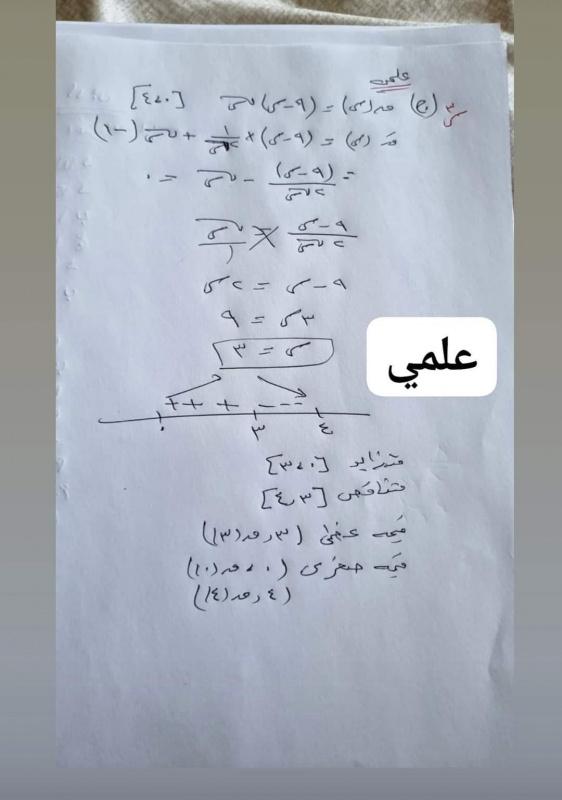 علمي
س٢ (ج) ق(س) = (٩-س)√س [٠،٤]
قَ(س) = (٩-س) × ١/٢√س + √س(-١)
= (٩-س)/٢√س - √س = ٠
٩-س/٢√س = √س/١
٩-س = ٢س
٣س = ٩
س = ٣
علمي
+ + + - - -
٠ ٣ ٤
متزايد [٠،٣]
متناقص [٣،٤]
قيمة عظمى (٣،ق(٣))
قيمة صغرى (٠،ق(٠))
(٤،ق(٤))